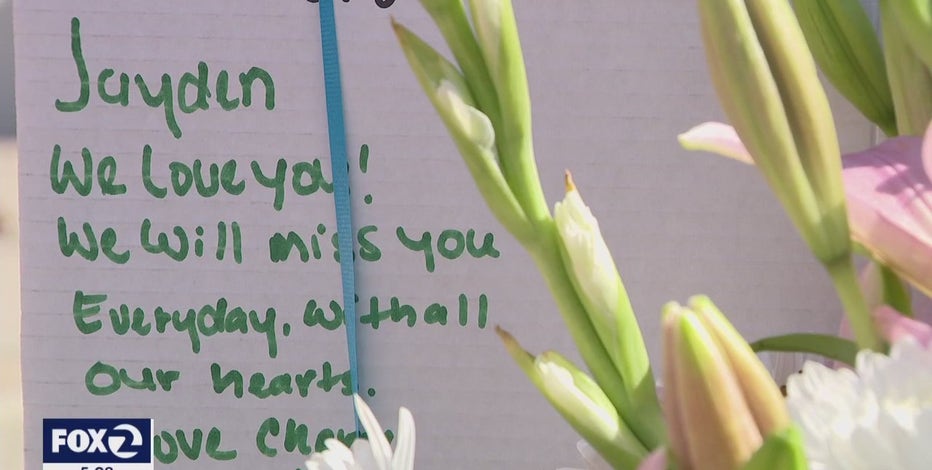 Jayden
We love you!
We will miss you
Everyday. with all
our hearts.
FOX 2